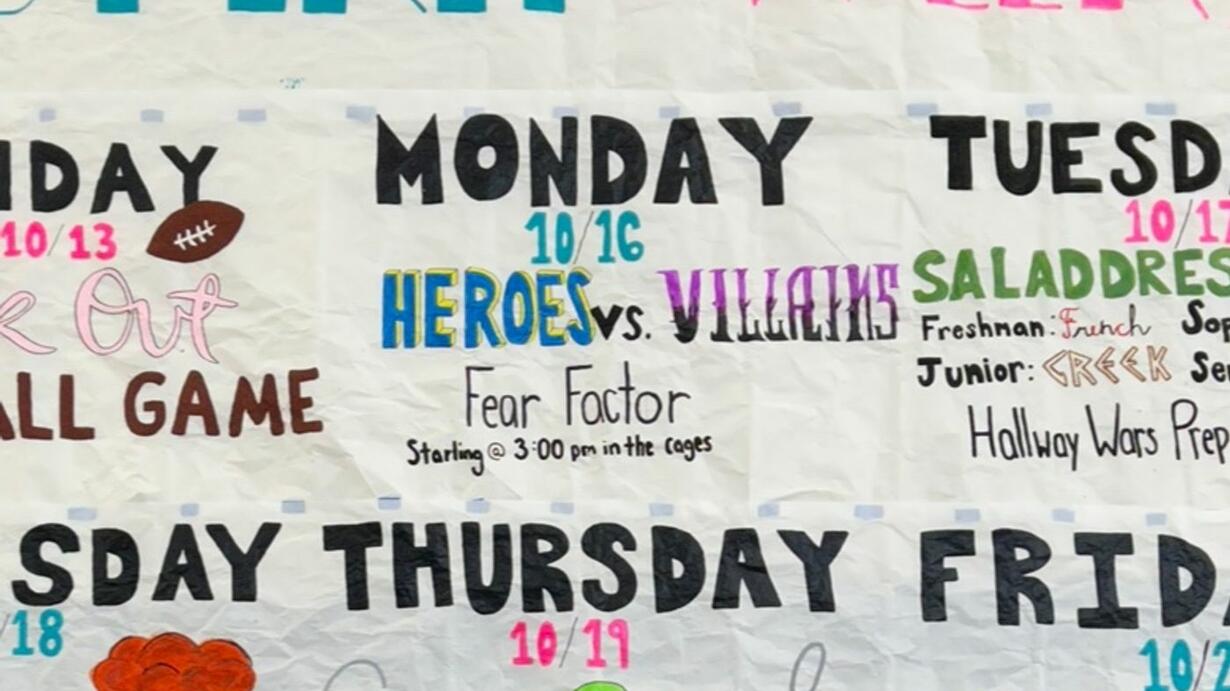 IDAY
10/13
Out
ALL GAME
MONDAY
10/16
HEROES vs. VILLAINS
Fear Factor
Starling @ 3:00 pm in the cages
TUESD
10/17
SALADDRES
Freshman: French Sop
Junior: GREEK Se
Hallway Wars Prep
SDAY
/18
THURSDAY
10/19
FRID
10/2